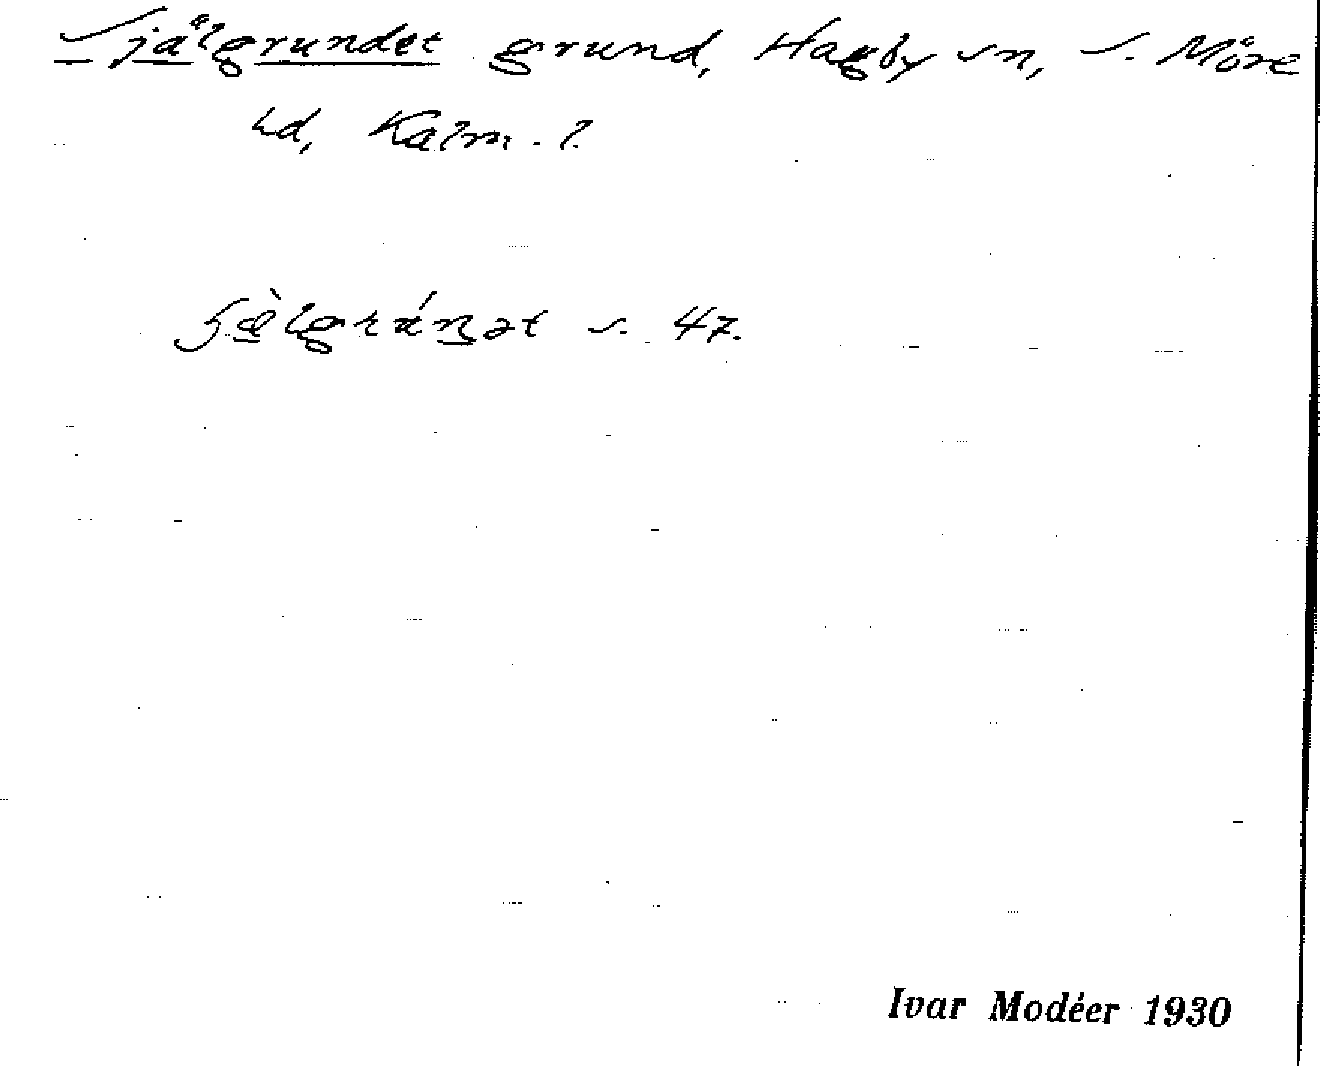 Själgrundet grund, Hagby sn, S. Möre
hd, Kalm. l.
s. 47.
Ivar Modéer 1930